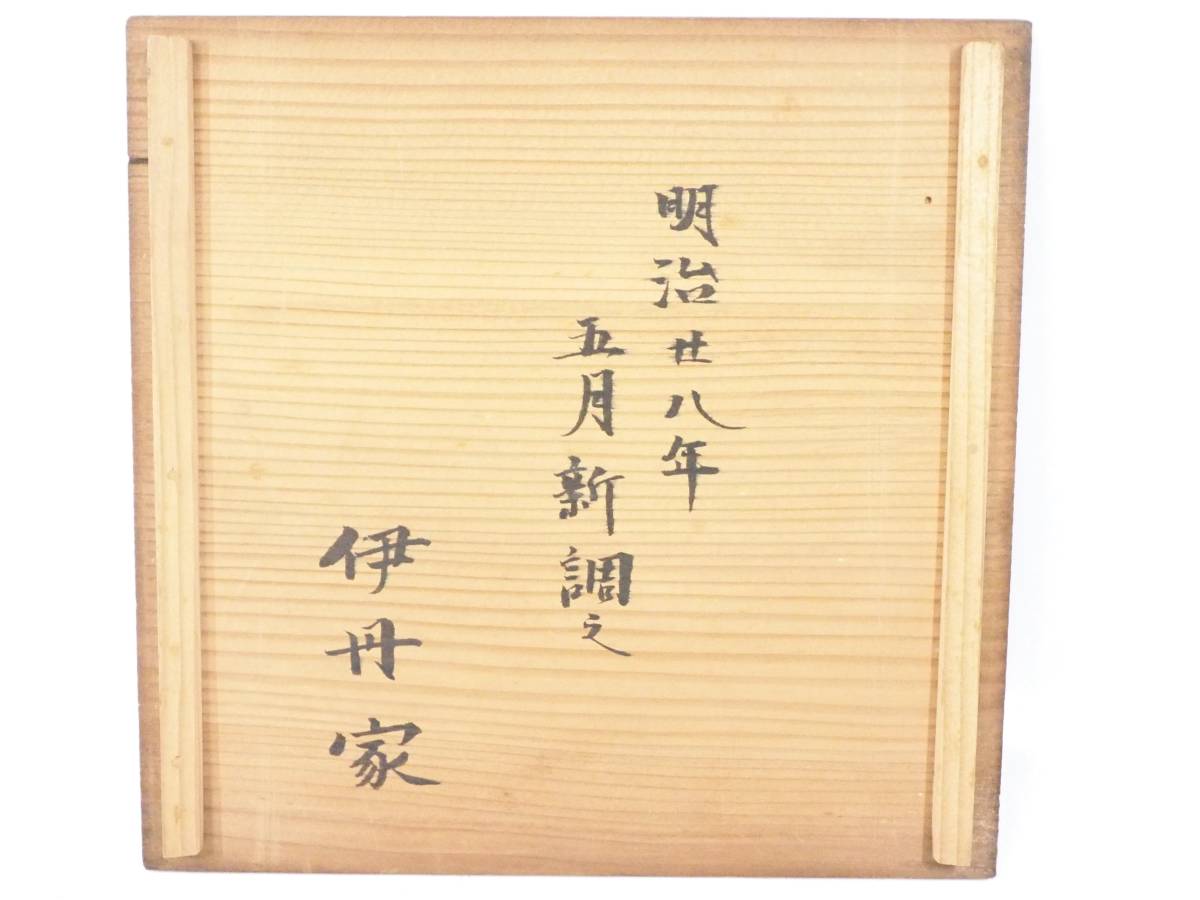 明治廿八年
五月新調之
伊丹家